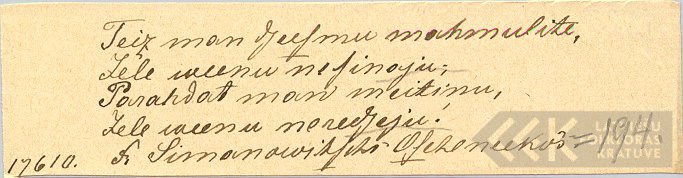 Teiz man dzeesmu mahmulite,
Zele weenu nesinaju;
Parahdat man meitinu,
Zele weenu naredzeju!
17610. Fr Simanowitschs Oscheneekos = 194.
LATVIJU
FOLKLORAS
KRĀTUVE